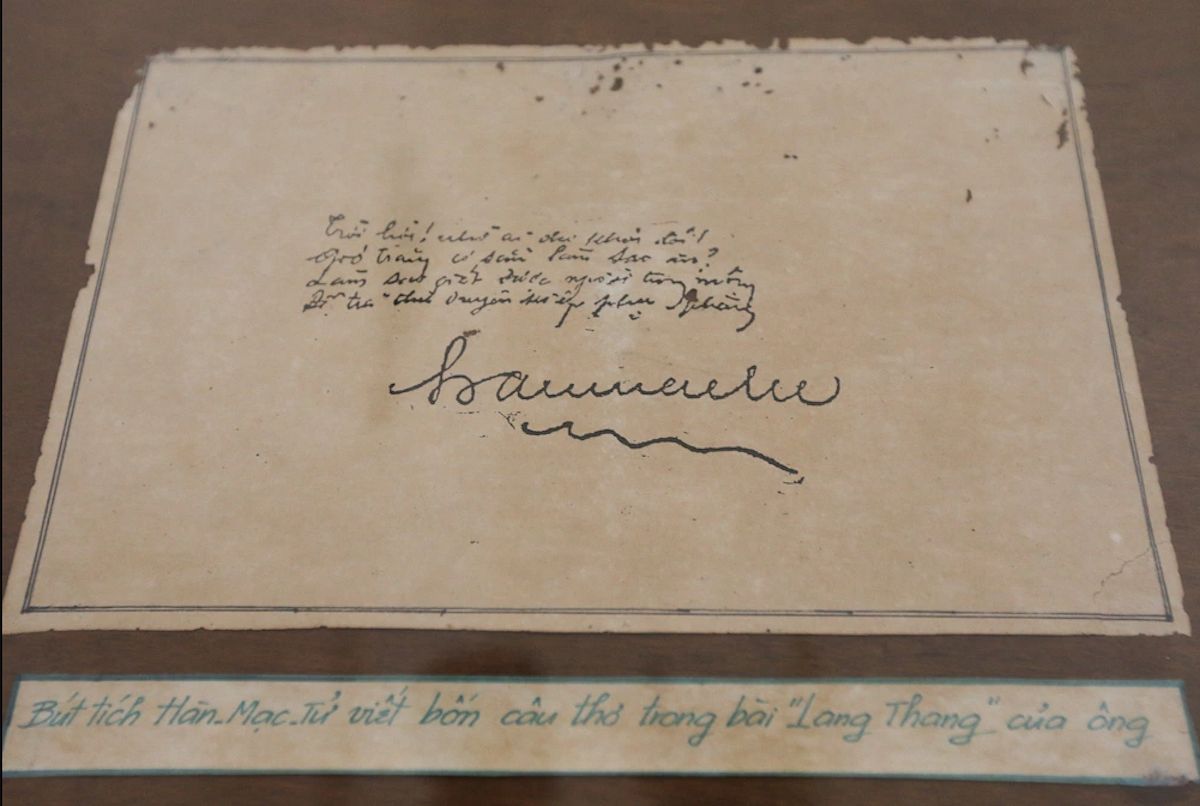 Trời hỡi! nhờ ai cho khỏi đói!
Gió trăng có sẵn làm sao ăn?
Làm sao giết được người trong mộng
Để trả thù duyên kiếp phụ phàng
Hanmactu
Bút tích Hàn-Mạc-Tử viết bốn câu thơ trong bài "Lang Thang" của ông